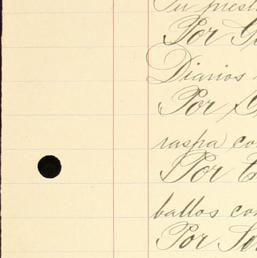 Tu prest
Por G
Diarios
Por
raspa co
Por C
ballos con
Por